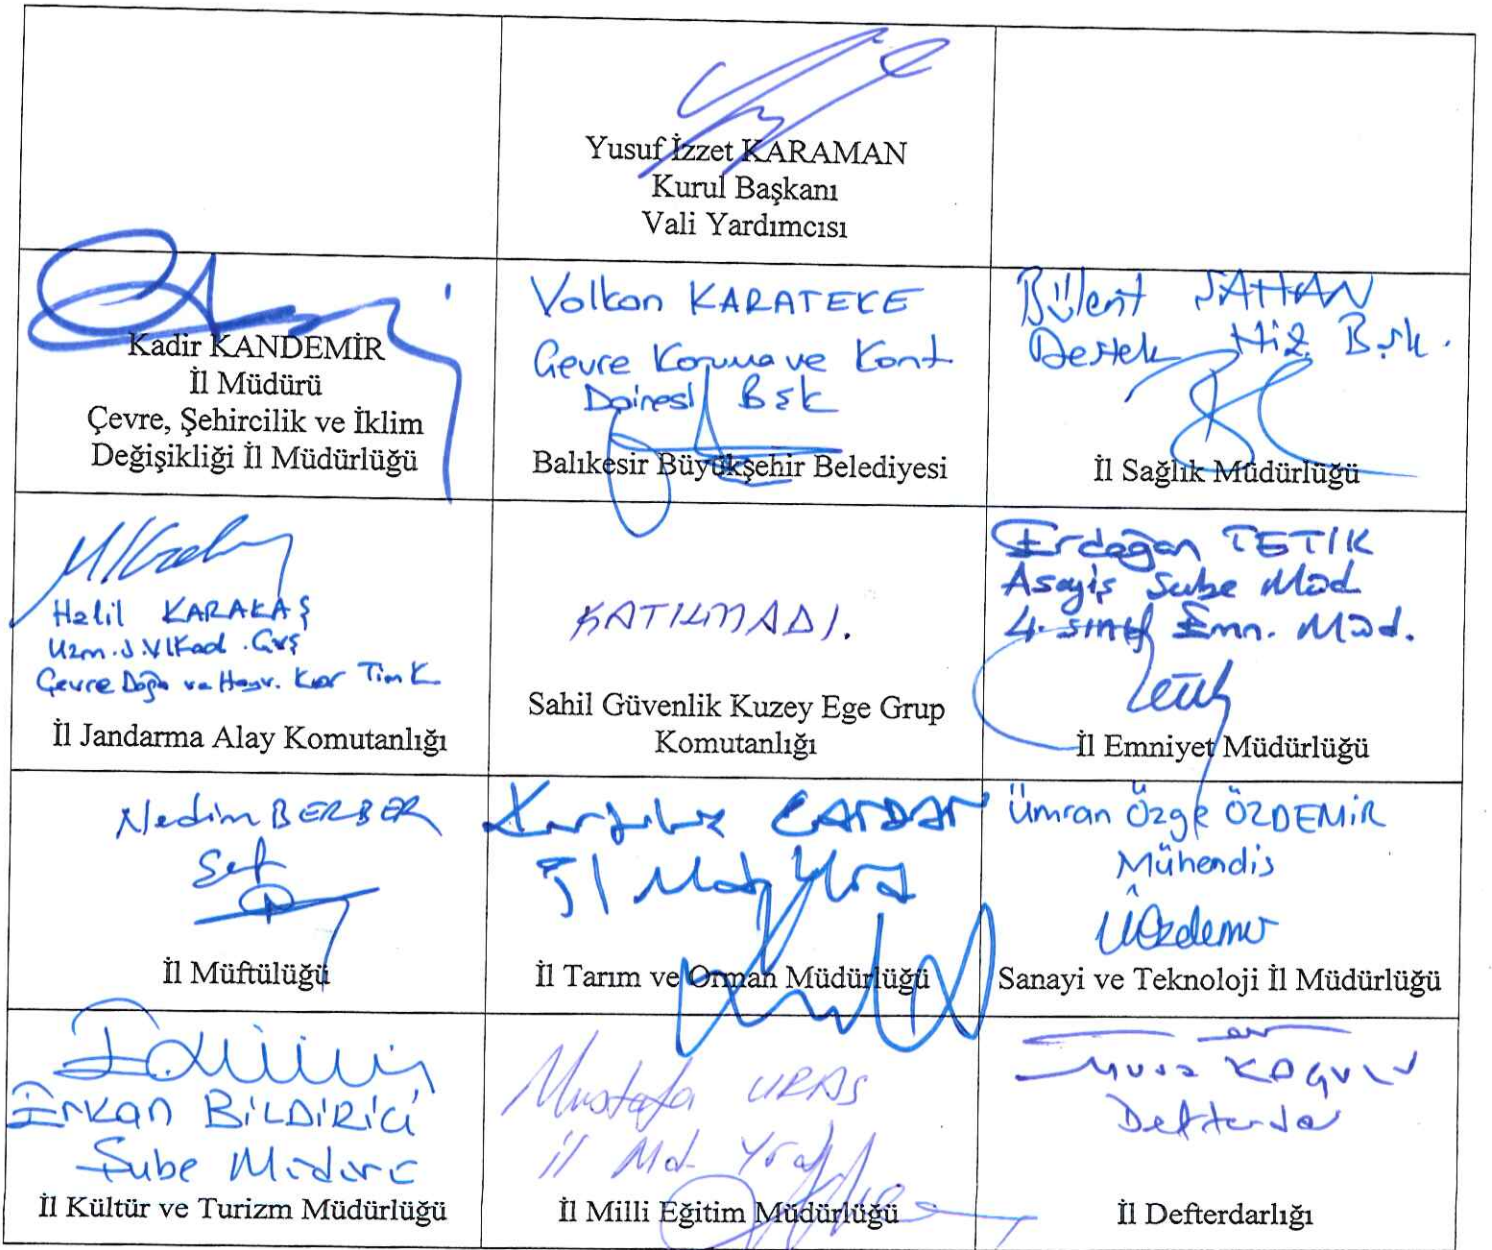 Yusuf İzzet KARAMAN
Kurul Başkanı
Vali Yardımcısı
Kadir KANDEMİR
İl Müdürü
Çevre, Şehircilik ve İklim
Değişikliği İl Müdürlüğü
Volkan KARATEKE
Çevre Koruma ve Kont
Dairesi Bşk
Balıkesir Büyükşehir Belediyesi
Bülent ŞAHAN
Destek Hiz. Bşk.
İl Sağlık Müdürlüğü
Halil KARAKAŞ
Uzm.J.VI Kad. Çvş
Çevre Doğa ve Hayv. Kor Tim K
İl Jandarma Alay Komutanlığı
KATILMADI.
Sahil Güvenlik Kuzey Ege Grup
Komutanlığı
Erdoğan TETİK
Asayiş Şube Müd
4. sınıf Emn. Müd.
İl Emniyet Müdürlüğü
Nedim BERBER
Şef
İl Müftülüğü
İl Müd Yrd
İl Tarım ve Orman Müdürlüğü
Ümran Özge ÖZDEMİR
Mühendis
Sanayi ve Teknoloji İl Müdürlüğü
Erkan BİLDİRİCİ
Şube Müdürü
İl Kültür ve Turizm Müdürlüğü
Mustafa URAS
İl Md. Yrd
İl Milli Eğitim Müdürlüğü
Musa
Defterdar
İl Defterdarlığı